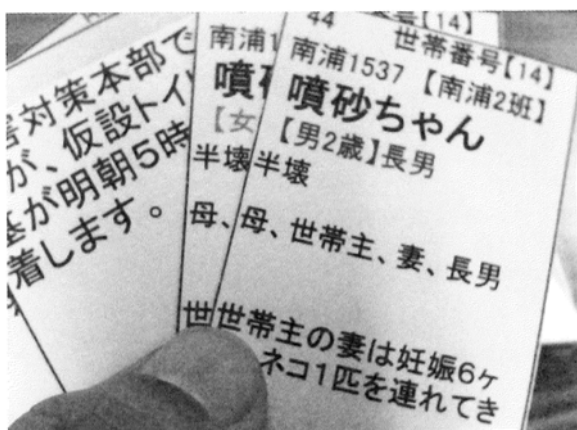 害対策本部で
が、仮設トイ
基が明朝5時
着します。
南浦1
噴
【女
半壊
母、
世
44
号【14】
世帯番号【14】
南浦1537 【南浦2班】
噴砂ちゃん
【男2歳】長男
半壊
母、世帯主、妻、長男
世帯主の妻は妊娠6ヶ
ネコ1匹を連れてき